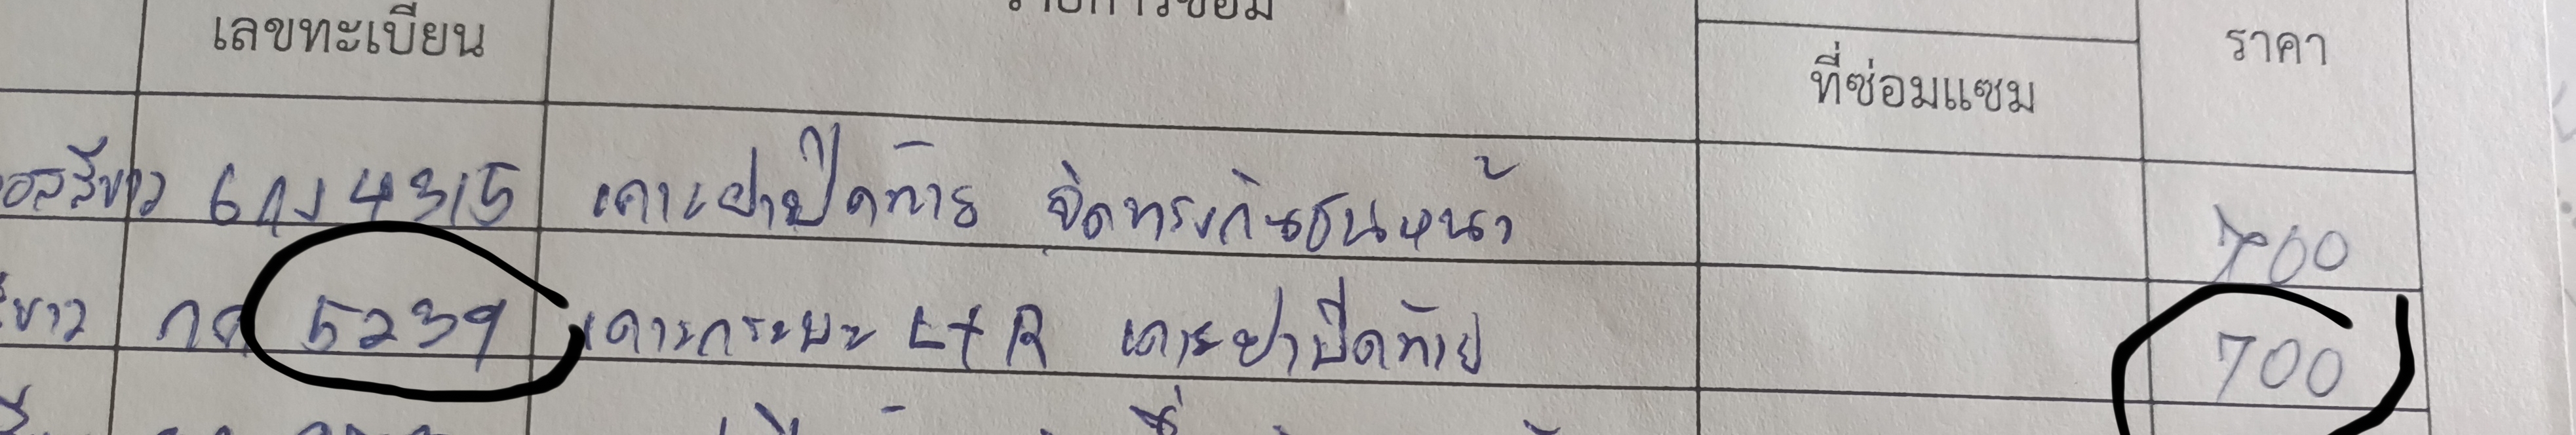 เลขทะเบียน รายการซ่อม ที่ซ่อมแซม ราคา
สีขาว 6กง 4315 เคาะฝาปิดท้าย จัดทรงกันชนหน้า 700
ขาว 5239 เคาะกระบะ L+R เคาะฝาปิดท้าย 700